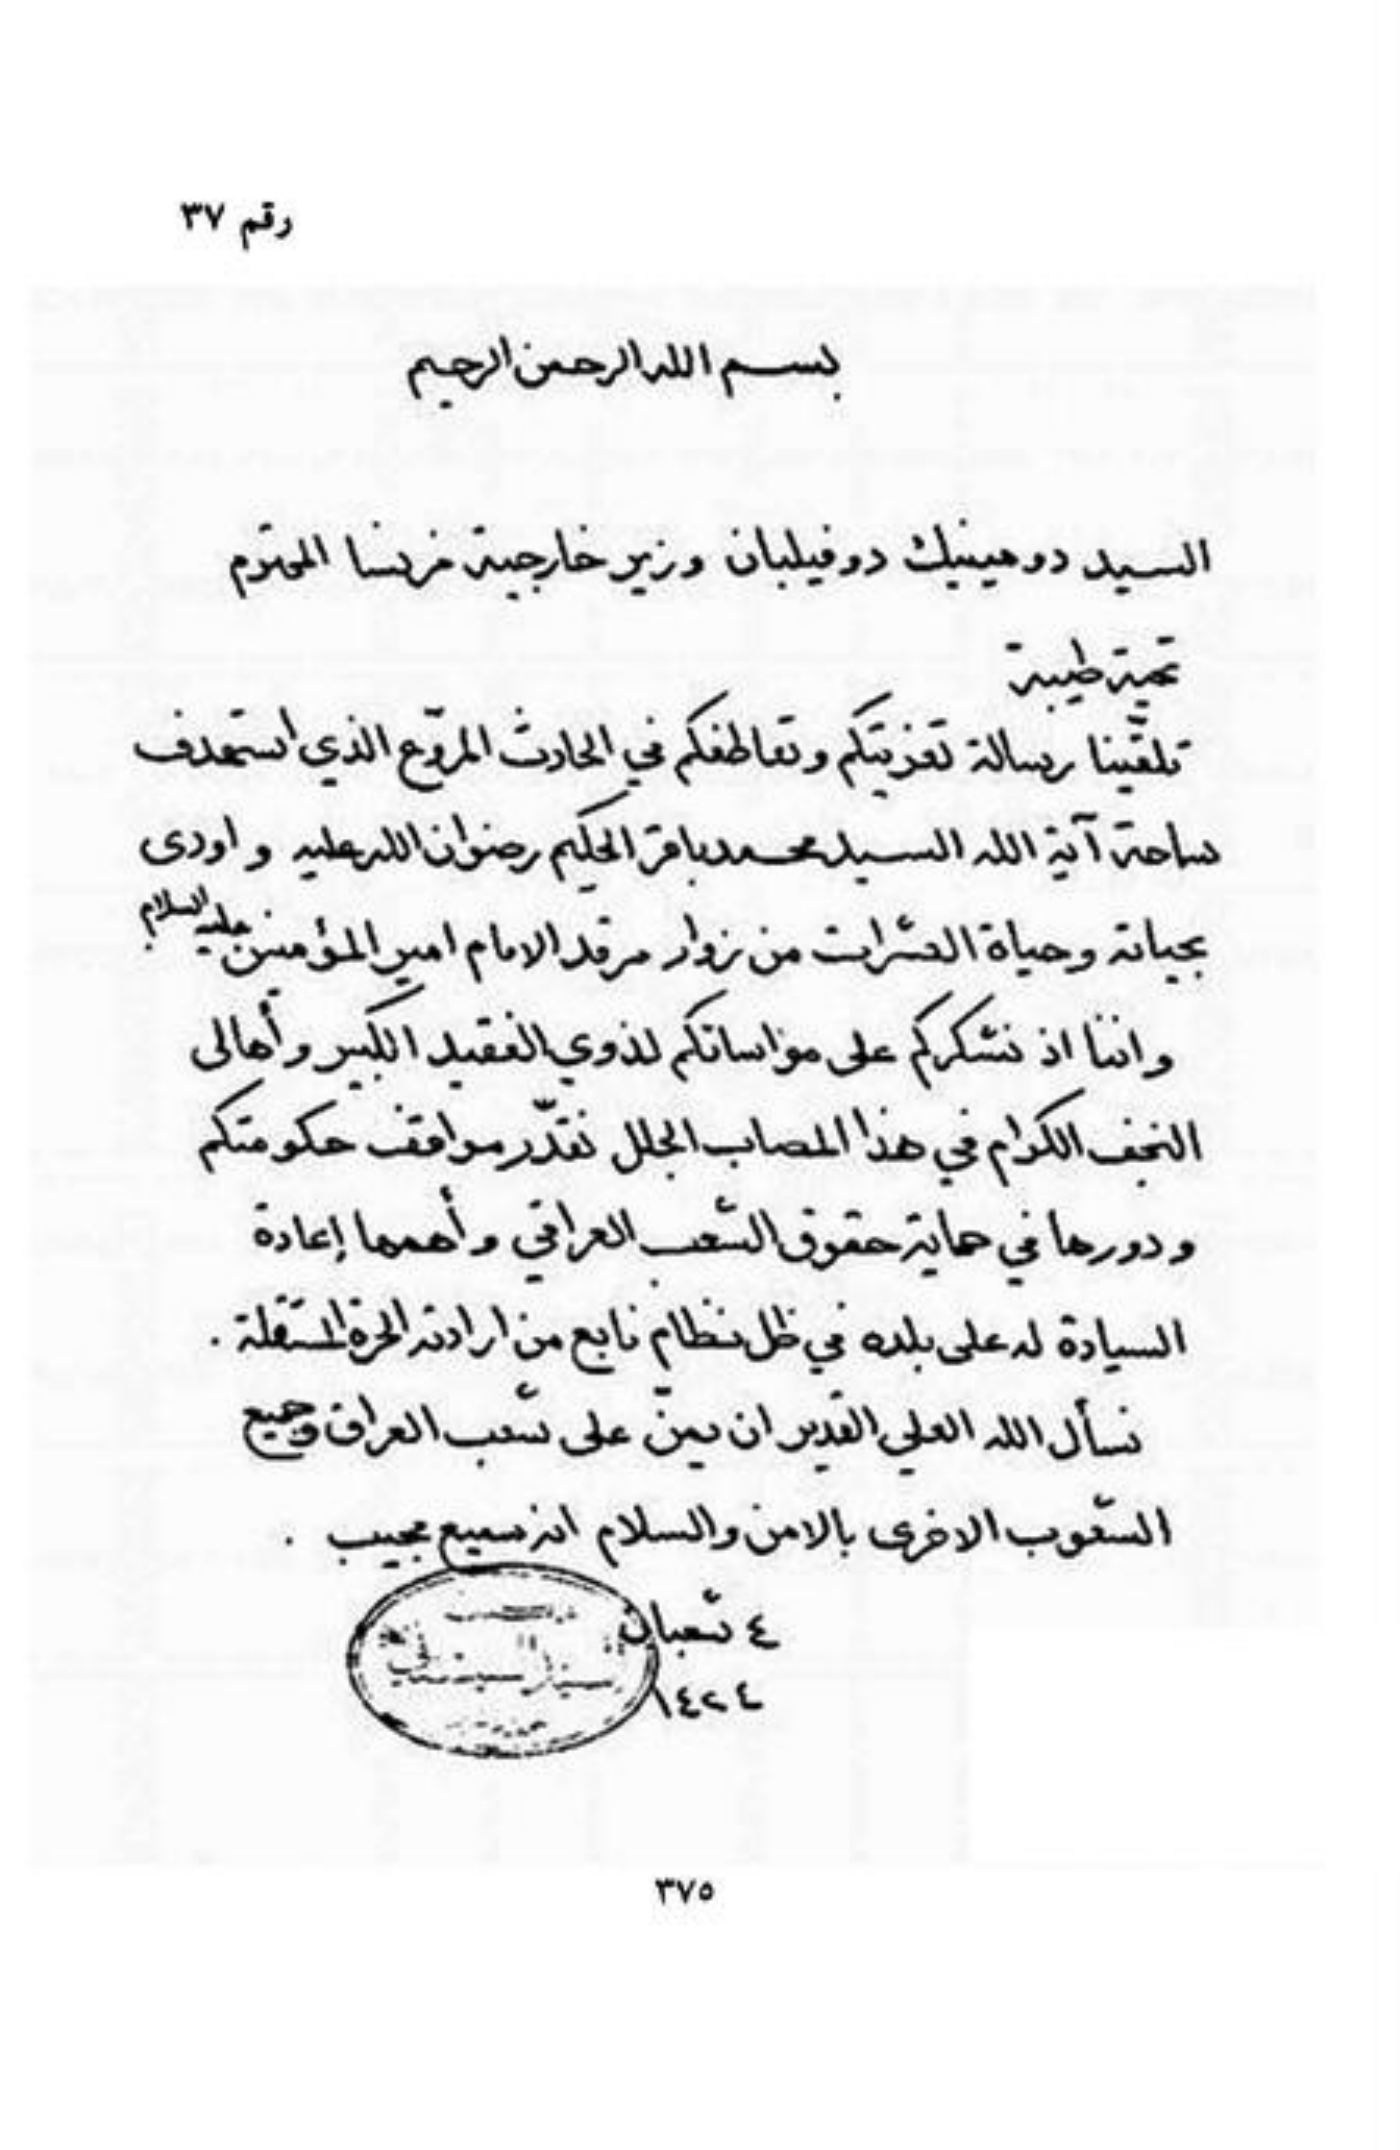 رقم ٣٧
بسم الله الرحمن الرحيم
السيد دومينيك دوفيلبان وزير خارجية فرنسا المحترم
تحية طيبة
تلقّينا رسالة تعزيتكم وتعاطفكم في الحادث المروّع الذي استهدف
سماحة آية الله السيد محمد باقر الحكيم رضوان الله عليه واودى
بحياته وحياة العشرات من زوار مرقد الامام امير المؤمنين عليه السلام
واننا اذ نشكركم على مؤاساتكم لذوي الفقيد الكبير وأهالى
النجف الكرام في هذا المصاب الجلل نقدّر مواقف حكومتكم
ودورها في حماية حقوق الشعب العراقي وأهمها إعادة
السيادة له على بلده في ظل نظام نابع من ارادته الحرة المستقلة .
نسأل الله العلي القدير ان يمنّ على شعب العراق وجميع
الشعوب الاخرى بالامن والسلام انه سميع مجيب .
٤ شعبان
١٤٢٤
٣٧٥